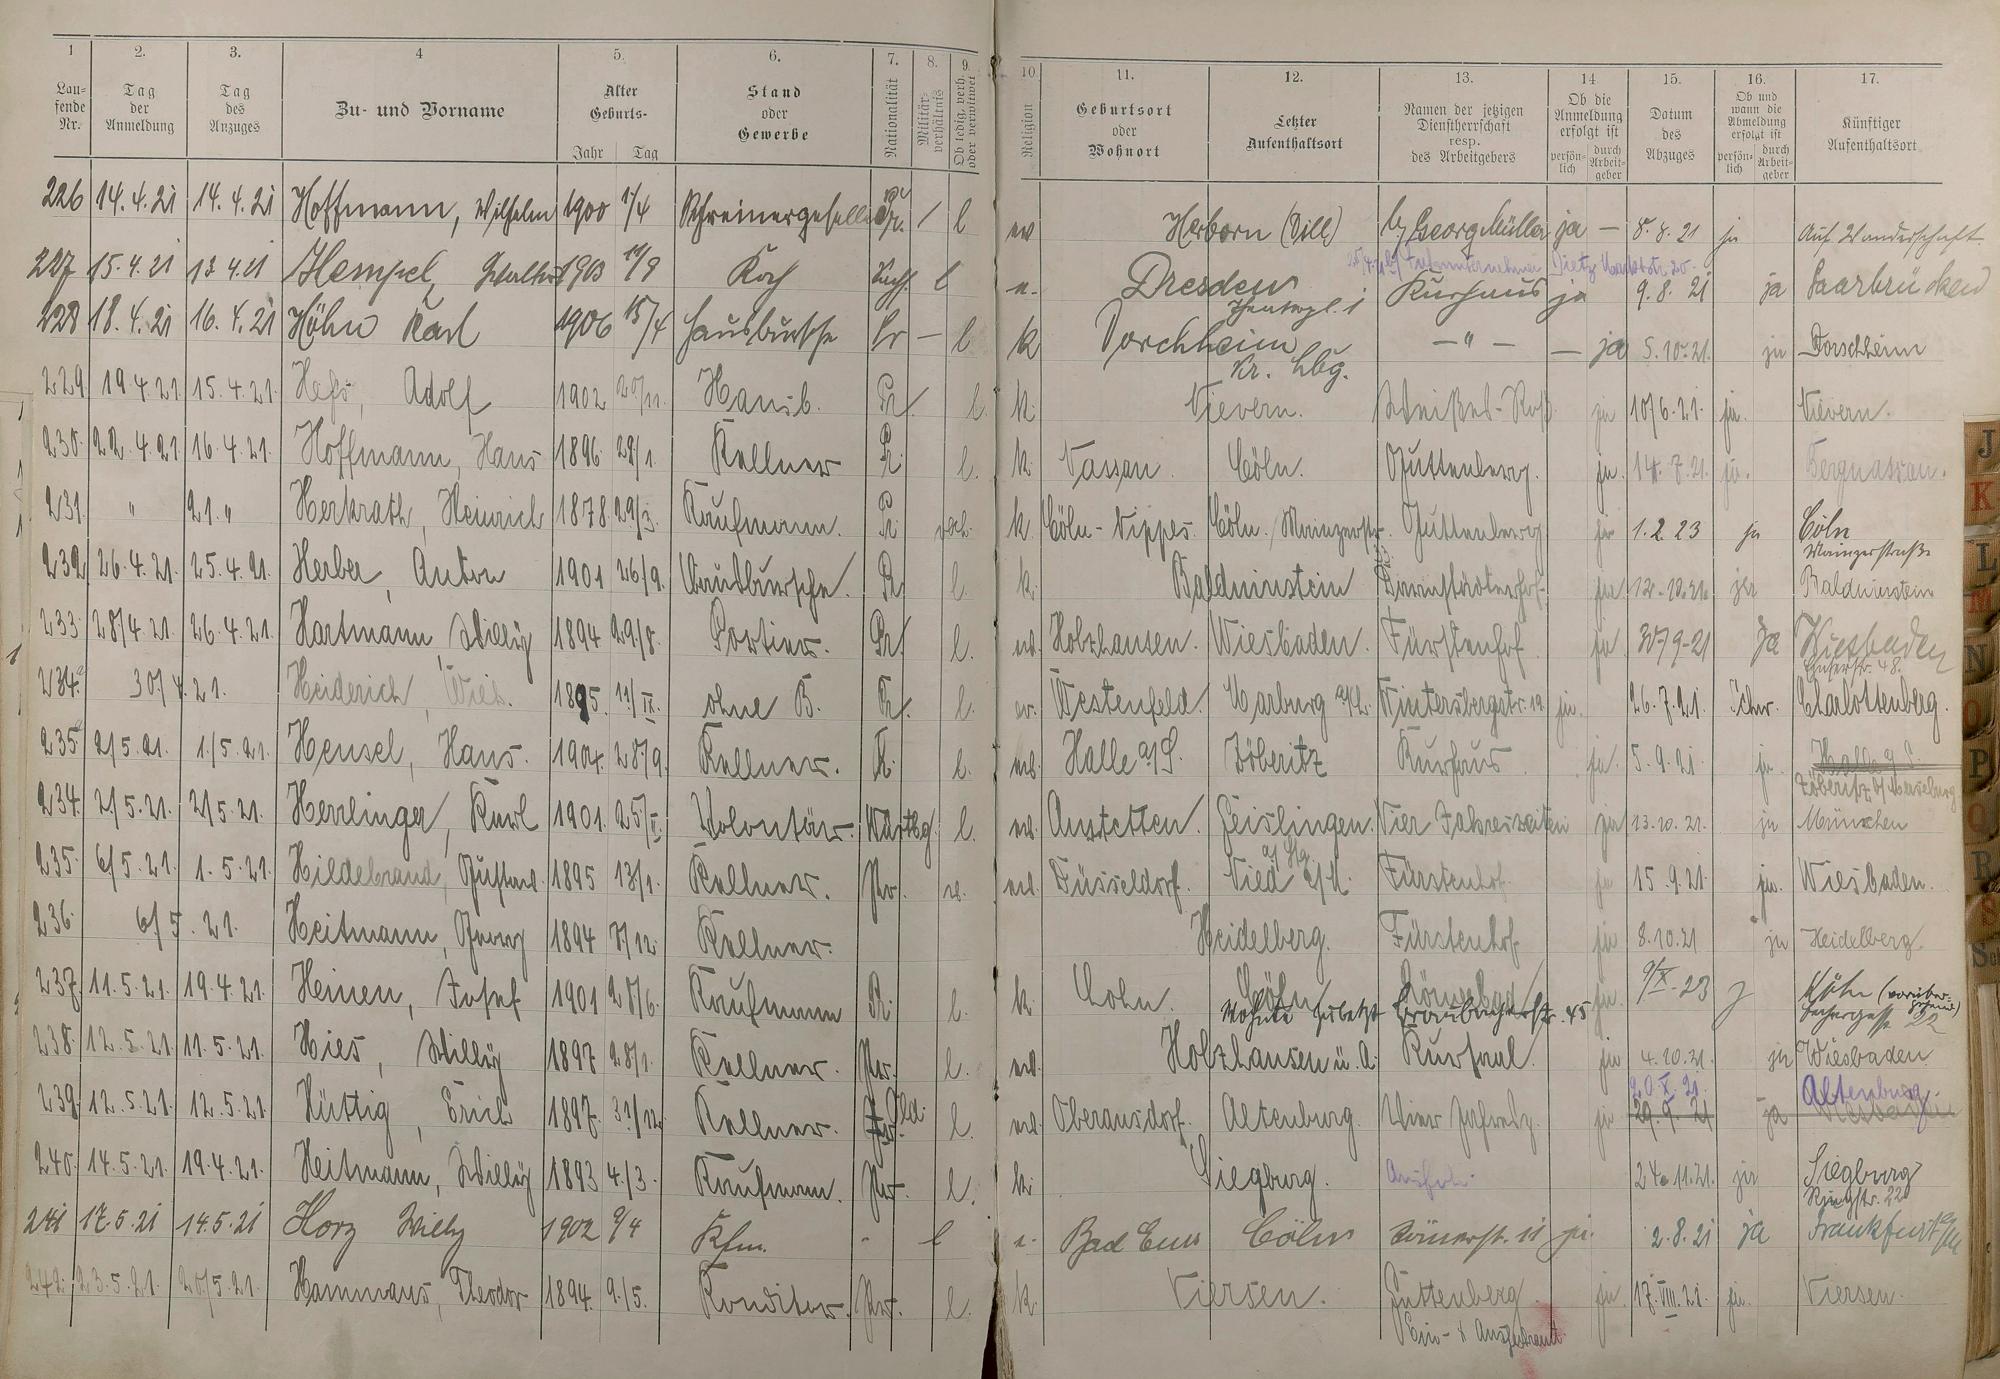 1 2. 3. 4 5. 6. 7. 8. 9. 10. 11. 12. 13. 14 15. 16. 17.
Laufende Nr. Tag der Anmeldung Tag des Anzuges Zu- und Vorname Alter Geburts- Jahr Tag Stand oder Gewerbe Nationalität Militärverhältnis Ob ledig, verh. oder verwitwet Religion Geburtsort oder Wohnort Letzter Aufenthaltsort Namen der jetzigen Dienstherrschaft resp. des Arbeitgebers Ob die Anmeldung erfolgt ist persönlich durch Arbeitgeber Datum des Abzuges Ob und wann die Abmeldung erfolgt ist persönlich durch Arbeitgeber Künftiger Aufenthaltsort
226 14.4.21 14.4.21 Hoffmann, Wilhelm 1900 1/4 Schreinergeselle / l Herborn (Dill) Georg Müller ja — 8.8.21 ja Auf Wanderschaft
227 15.4.21 13.4.21 Hempel, Walter 1903 11/9 Koch l Dresden Kurhaus ja 9.8.21 ja Saarbrücken
228 18.4.21 16.4.21 Höhn Karl 1906 15/4 Hausbursche Pr — l k Dorchheim Kr. Lbg. — " — — ja 5.10.21. ja Dorchheim
229 19.4.21. 15.4.21. Adolf 1902 20/11. Hausb. Pr. l. k. Nievern. Weißes-Roß ja 10/6.21. ja. Nievern.
230. 22.4.21 16.4.21. Hoffmann, Hans 1896 28/1. Kellner Pr. l. k. Nassau. Cöln. Guttenberg. ja. 14.7.21. ja. Bergnassau.
231. " 21. " Herkrath, Heinrich 1878. 29/3. Kaufmann. Pr. verh. k. Cöln-Nippes. Cöln. Mainzerstr. Guttenberg ja 1.2.23 ja Cöln Mainzerstraße
232 26.4.21. 25.4.21. Herber, Anton 1901 26/9. Hausbursche. Pr. l. k. Balduinstein Darmstädterhof. ja 12.10.21. ja Balduinstein
233. 28/4.21. 26.4.21. Hartmann, Willy 1894 29/8. Portier. Pr. l. ev. Holzhausen. Wiesbaden. Fürstenhof ja 30/9-21 Ja Wiesbaden
234. 30/4.21. Heiderich, 1895. 11/IX. ohne B. Pr. l. ev. Westenfeld. Marburg a/L. Wintersbergstr. 19. ja. 26.7.21. schr. Charlottenberg.
235 2/5.21. 1./5.21. Hensel, Hans. 1904. 28/9. Kellner. Pr. l. ev. Halle a/S. Zöberitz Kurhaus ja. 5.9.21. ja. Halle a S. Zöberitz b/ Merseburg
234. 2/5.21. 2/5.21. Herrlinger, Karl 1901. 25/V. Volontär. Württbg. l. ev. Amstetten. Geislingen. Vier Jahreszeiten ja 13.10.21. ja München
235. 6/5.21. 1.5.21. Hildebrand, Gustav. 1895 13/1. Kellner. Pr. ev. Düsseldorf. Nied a/M. Fürstenhof. ja 15.9.21. ja. Wiesbaden.
236. 6/5.21. Heitmann, Georg 1894 8/12. Kellner. Heidelberg. Fürstenhof. ja 8.10.21 ja Heidelberg.
237. 11.5.21. 19.4.21. Heinen, Josef 1901 28/6. Kaufmann Pr. l. k. Cöln. Cöln Römerbad ja. 9/X.23 j Köln (vorübergehend)
wohnte zuletzt Braubacherstr. 45
238. 12.5.21. 11.5.21. Hies, Willy 1897 28/1. Kellner. Pr. l. ev. Holzhausen ü. A. Kursaal. ja 4.10.21. ja Wiesbaden
239. 12.5.21. 12.5.21. Hüttig, Erich 1897. 31/12. Kellner. l. ev. Altenburg. Vier Jahresz. ja 20.X.21. 29.9.21 ja Altenburg. Wiesbaden
240. 14.5.21. 19.4.21. Heitmann, Willy 1893 4./3. Kaufmann. Pr. l. k. Siegburg. 24.11.21. ja Siegburg Ringstr. 22
241 17.5.21 14.5.21 Horz Willy 1902 9/4 Kfm. - l Bad Ems Cöln Römerst. 11 ja. 2.8.21 ja Frankfurt a/M
242. 23.5.21. 20/5.21. Hammans, Theodor 1894. 9./5. Konditor. Pr. l. k. Viersen. Guttenberg ja. 17.VIII.21. ja. Viersen.
J
K
L
M
N
O
P
Q
R
S